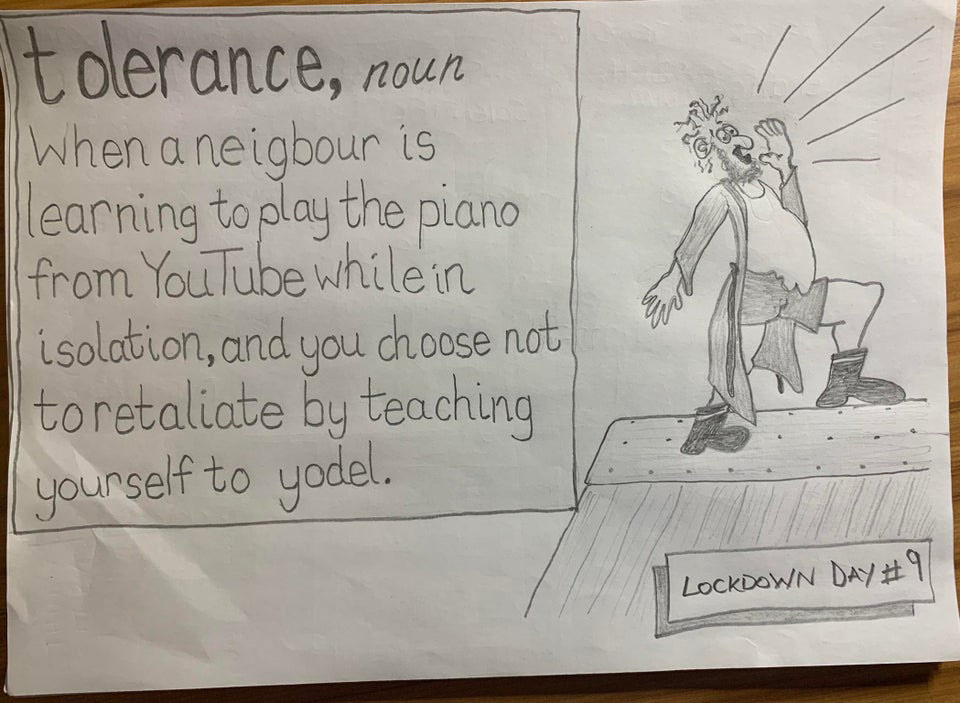 tolerance, noun
When a neigbour is
learning to play the piano
from YouTube while in
isolation, and you choose not
to retaliate by teaching
yourself to yodel.
LOCKDOWN DAY #9